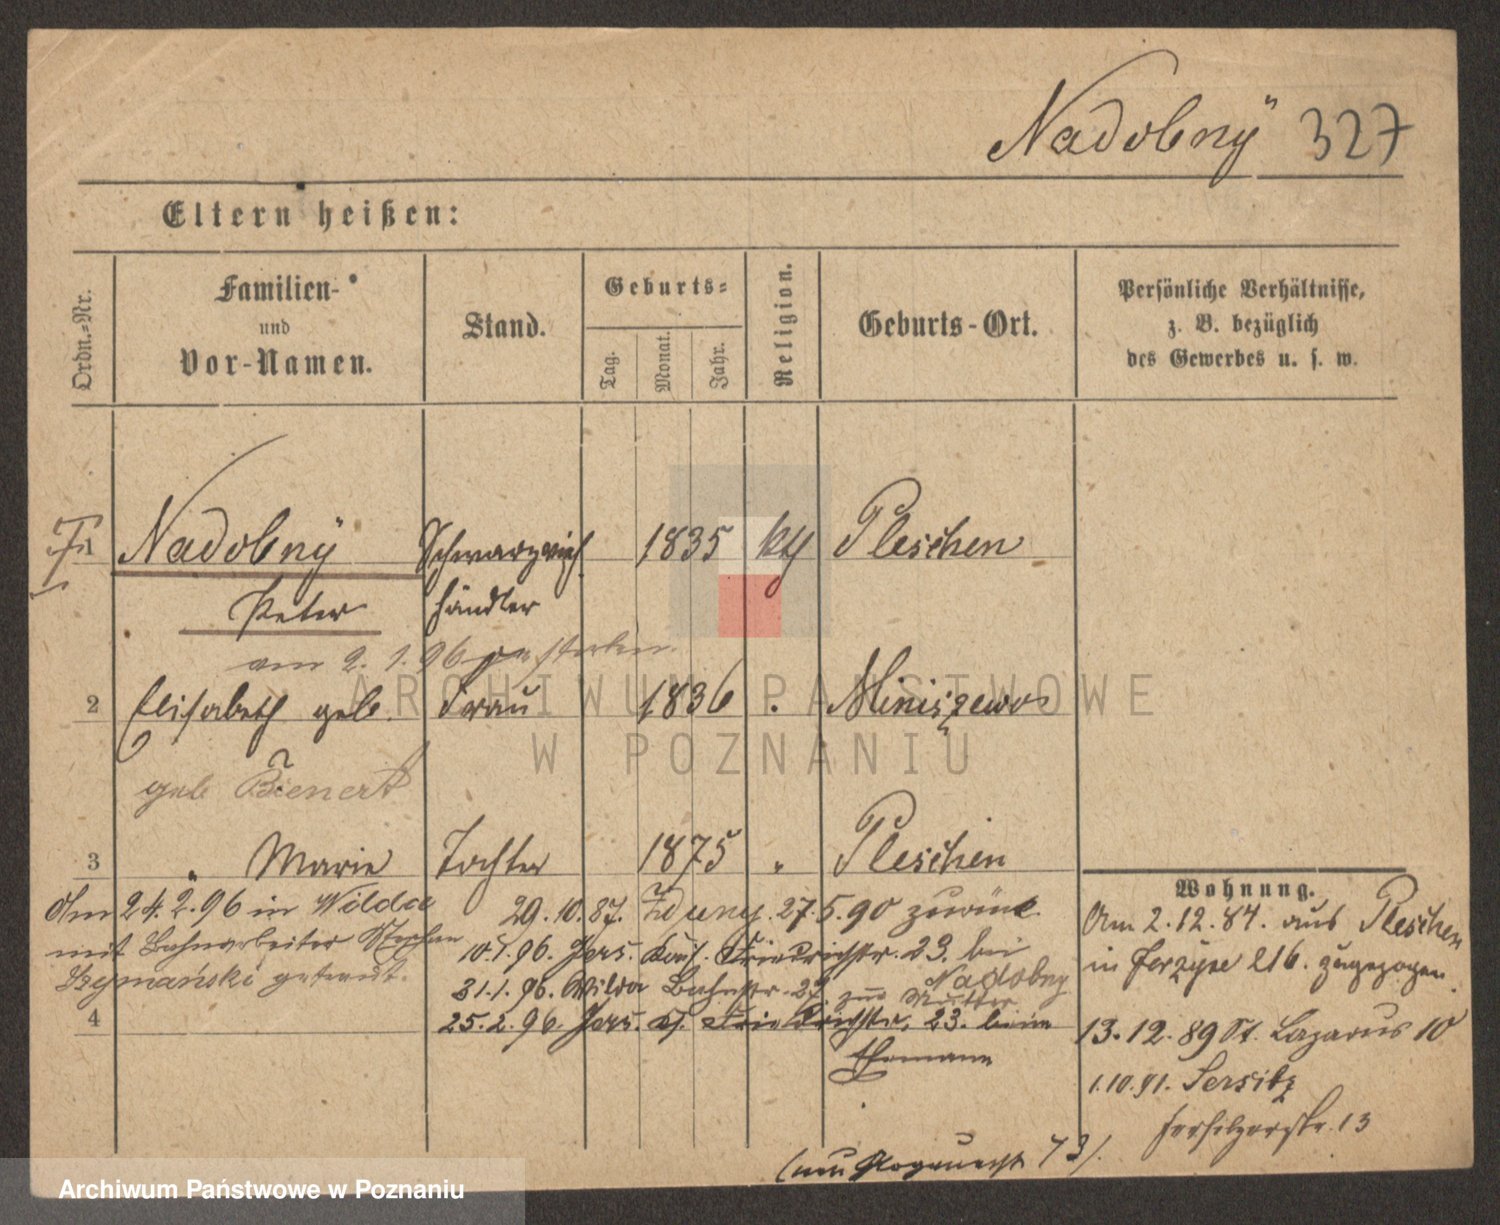 Nadobnÿ 327
Eltern heißen:
Ordn.=Nr.
Familien-
und
Vor-Namen.
Stand.
Geburts=
Tag.
Monat.
Jahr.
Religion.
Geburts-Ort.
Persönliche Verhältnisse,
z. B. bezüglich
des Gewerbes u. s. w.
1 Nadobnÿ 1835 kth Pleschen
Peter händler
am 2. 1. 96 gestorben.
2 Elisabeth geb. Frau 1836 Miniszewo
geb Bienert
3 " Marie Tochter 1875 " Pleschen
Am 24.2.96 in Wilda
mit Bahnarbeiter Stephan
Szymański getraut.
29.10.87. Zduny. 27.5.90 zurück.
10.1.96. Jers. Friedrichstr. 23. bei
Nadobny
31.1.96. Wilda Bahnstr. zur Mutter
4 25.2.96. Jers. Friedrichstr. 23. beim
Ehemann
Wohnung.
Am 2.12.84. aus Pleschen
in 216. zugezogen.
13.12.89 St. Lazarus 10
1.10.91. Jersitz
13
(neu 73).
ARCHIWUM PAŃSTWOWE
W POZNANIU
Archiwum Państwowe w Poznaniu